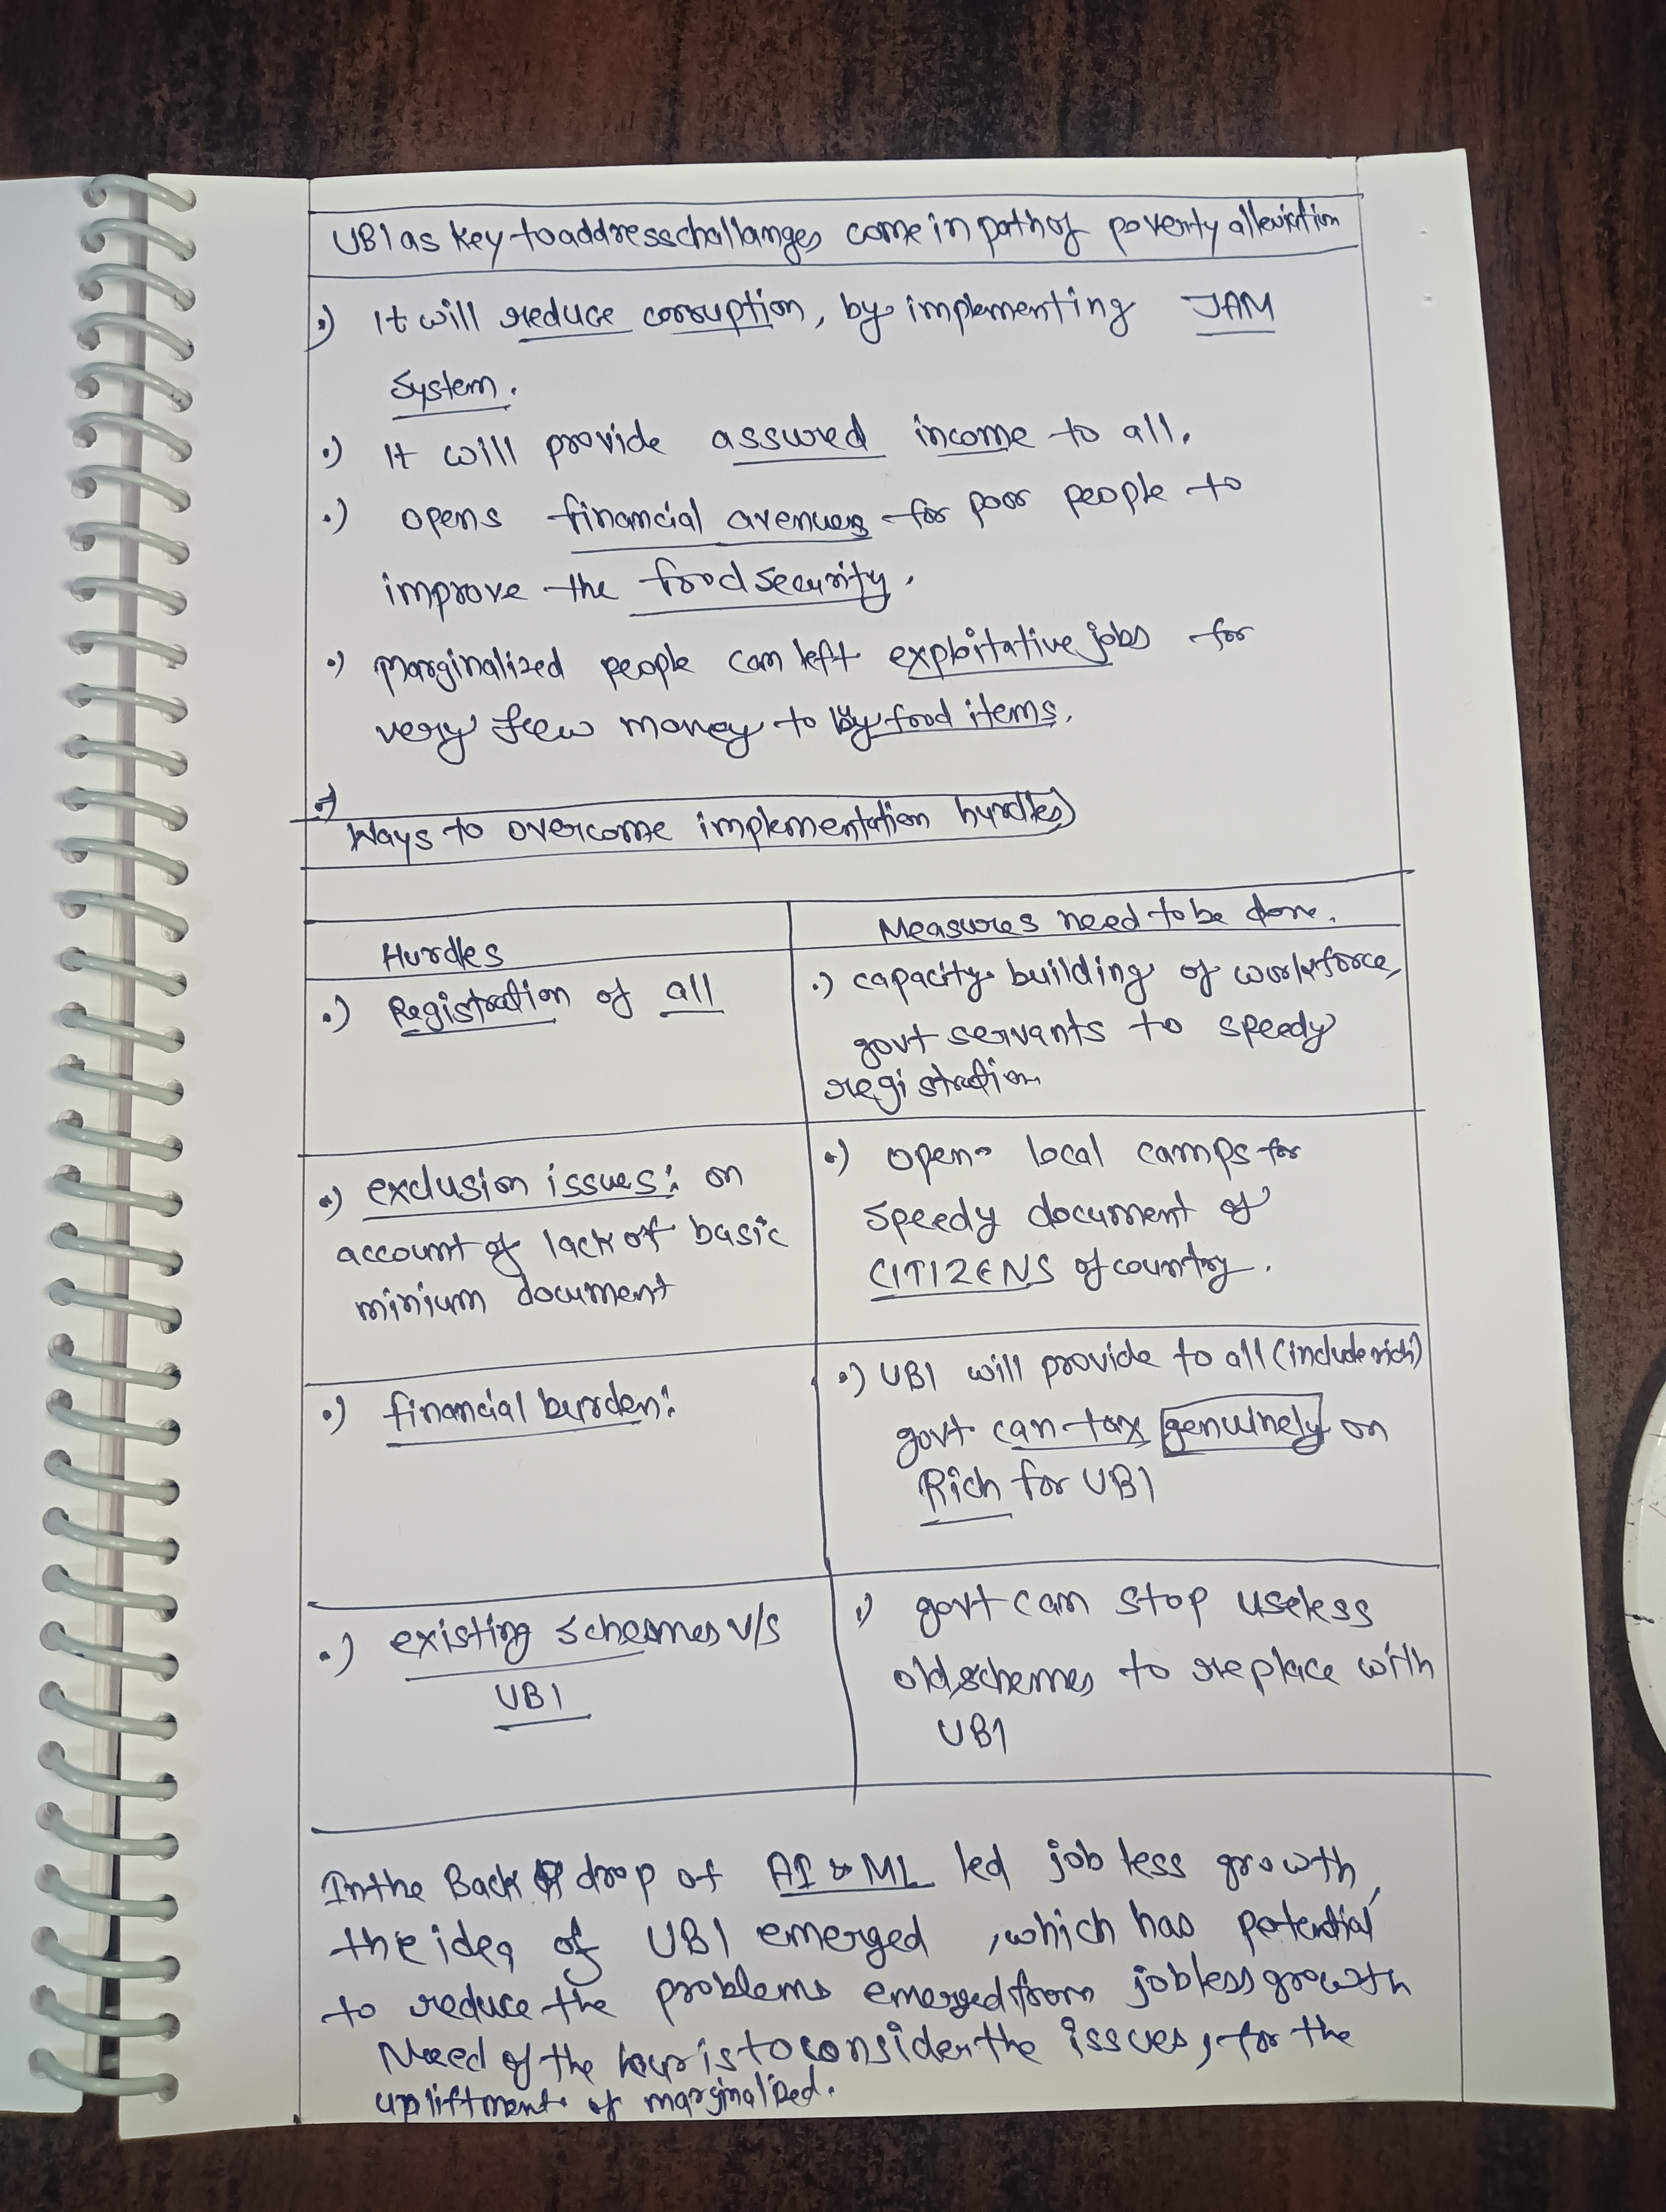 UBI as key to address challanges come in path of poverty alleviation
•) It will reduce corruption, by implementing JAM
System.
•) It will provide assured income to all.
•) opens financial avenues for poor people to
improve the food security.
•) marginalized people can left exploitative jobs for
very few money to by food items.
•) Ways to overcome implementation hurdles)
Hurdles
Measures need to be done.
•) Registration of all
•) capacity building of workforce,
govt servants to speedy
registration
•) exclusion issues: on
account of lack of basic
minium document
•) open local camps for
speedy document of
CITIZENS of country.
•) financial burden:
•) UBI will provide to all (include rich)
govt can tax genuinely on
Rich for UBI
•) existing schemes v/s
UBI
•) govt can stop useless
old schemes to replace with
UBI
In the Back drop of AI & ML led job less growth,
the idea of UBI emerged, which has potential
to reduce the problems emerged from jobless growth
Need of the hour is to consider the issues, for the
upliftment of marginalized.